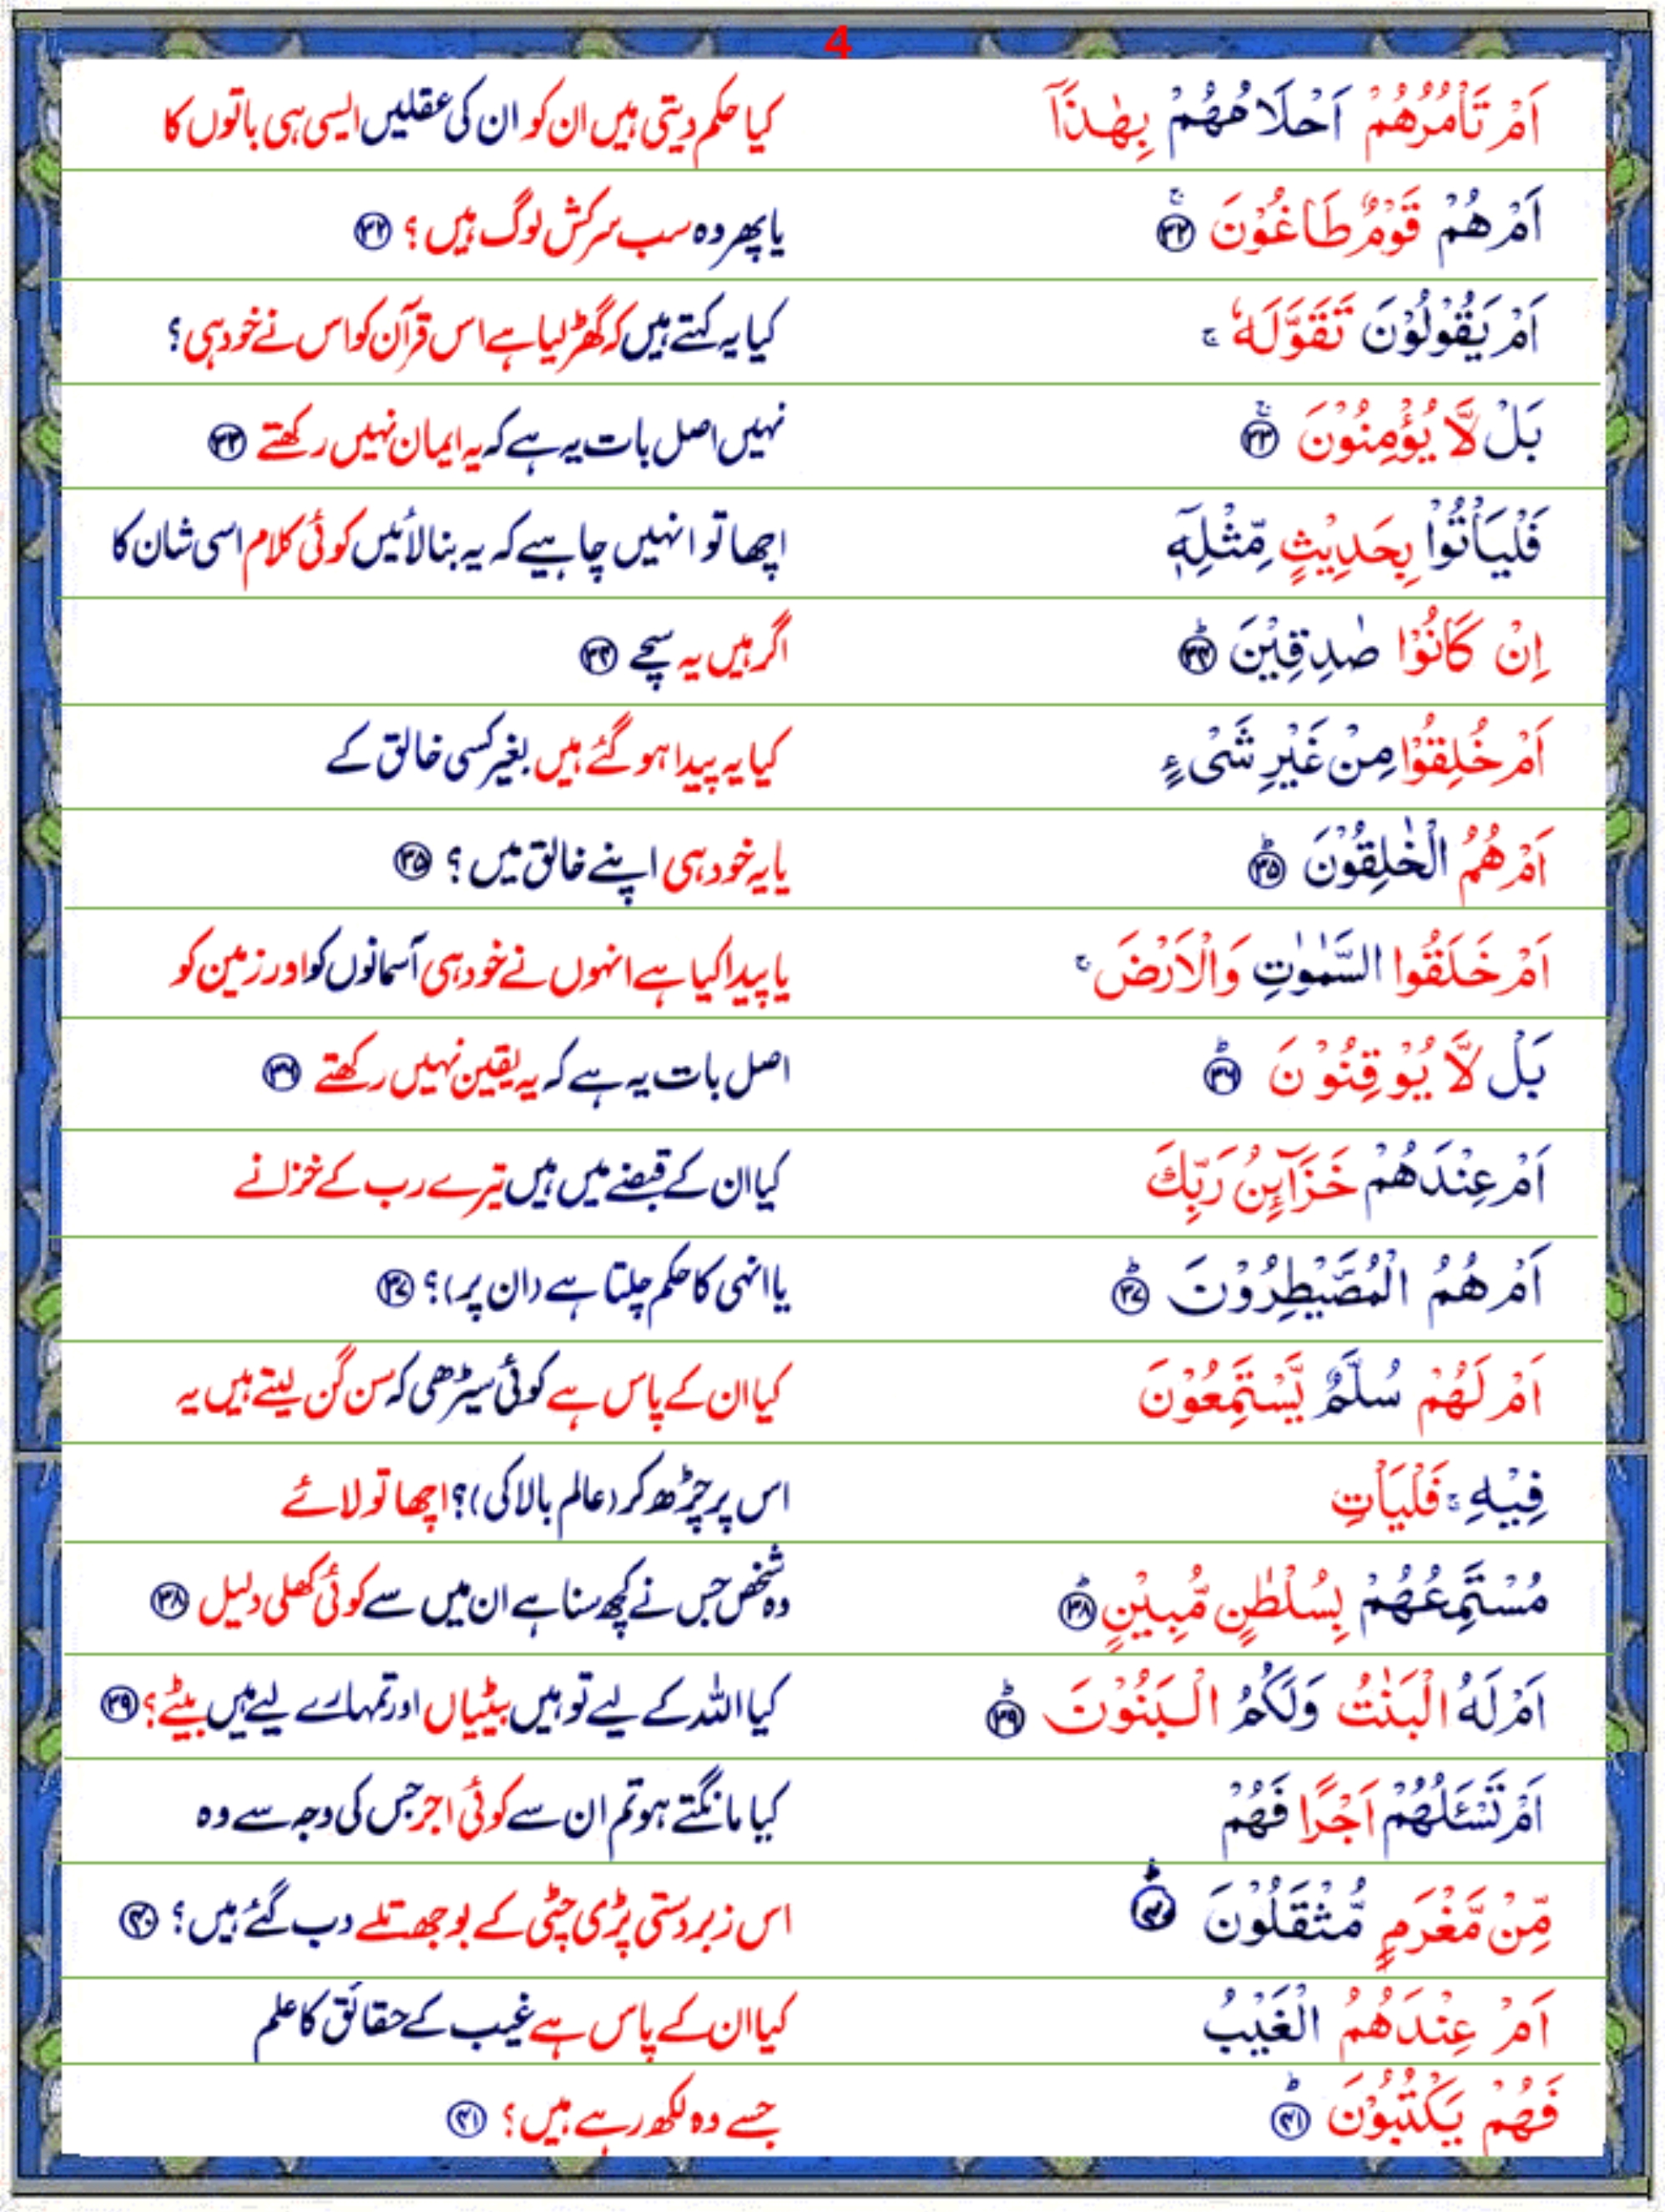 4
اَمْ تَاْمُرُهُمْ اَحْلَامُهُمْ بِهٰذَاۤ کیا حکم دیتی ہیں ان کو ان کی عقلیں ایسی ہی باتوں کا
اَمْ هُمْ قَوْمٌ طَاغُوْنَ ۚ ۳۲ یا پھر وہ سب سرکش لوگ ہیں ؟ ۳۲
اَمْ یَقُوْلُوْنَ تَقَوَّلَهٗ ۚ کیا یہ کہتے ہیں کہ گھڑ لیا ہے اس قرآن کو اس نے خود ہی؟
بَلْ لَّا یُؤْمِنُوْنَ ۚ ۳۳ نہیں اصل بات یہ ہے کہ یہ ایمان نہیں رکھتے ۳۳
فَلْیَاْتُوْا بِحَدِیْثٍ مِّثْلِهٖۤ اچھا تو انہیں چاہیے کہ یہ بنا لائیں کوئی کلام اسی شان کا
اِنْ كَانُوْا صٰدِقِیْنَ ؕ ۳۴ اگر ہیں یہ سچے ۳۴
اَمْ خُلِقُوْا مِنْ غَیْرِ شَیْءٍ کیا یہ پیدا ہو گئے ہیں بغیر کسی خالق کے
اَمْ هُمُ الْخٰلِقُوْنَ ؕ ۳۵ یا یہ خود ہی اپنے خالق ہیں ؟ ۳۵
اَمْ خَلَقُوا السَّمٰوٰتِ وَالْاَرْضَ ۚ یا پیدا کیا ہے انہوں نے خود ہی آسمانوں کو اور زمین کو
بَلْ لَّا یُوْقِنُوْنَ ؕ ۳۶ اصل بات یہ ہے کہ یہ یقین نہیں رکھتے ۳۶
اَمْ عِنْدَهُمْ خَزَآىِٕنُ رَبِّكَ کیا ان کے قبضے میں ہیں تیرے رب کے خزانے
اَمْ هُمُ الْمُصَۜیْطِرُوْنَ ؕ ۳۷ یا انہی کا حکم چلتا ہے (ان پر)؟ ۳۷
اَمْ لَهُمْ سُلَّمٌ یَّسْتَمِعُوْنَ کیا ان کے پاس ہے کوئی سیڑھی کہ سن گن لیتے ہیں یہ
فِیْهِ ۚ فَلْیَاْتِ اس پر چڑھ کر (عالم بالا کی)؟ اچھا تو لائے
مُسْتَمِعُهُمْ بِسُلْطٰنٍ مُّبِیْنٍ ؕ ۳۸ وہ شخص جس نے کچھ سنا ہے ان میں سے کوئی کھلی دلیل ۳۸
اَمْ لَهُ الْبَنٰتُ وَلَكُمُ الْبَنُوْنَ ؕ ۳۹ کیا اللہ کے لیے تو ہیں بیٹیاں اور تمہارے لیے ہیں بیٹے؟ ۳۹
اَمْ تَسْـَٔلُهُمْ اَجْرًا فَهُمْ کیا مانگتے ہو تم ان سے کوئی اجر جس کی وجہ سے وہ
مِّنْ مَّغْرَمٍ مُّثْقَلُوْنَ ؕ ۴۰ اس زبردستی پڑی چٹی کے بوجھ تلے دب گئے ہیں؟ ۴۰
اَمْ عِنْدَهُمُ الْغَیْبُ کیا ان کے پاس ہے غیب کے حقائق کا علم
فَهُمْ یَكْتُبُوْنَ ؕ ۴۱ جسے وہ لکھ رہے ہیں؟ ۴۱